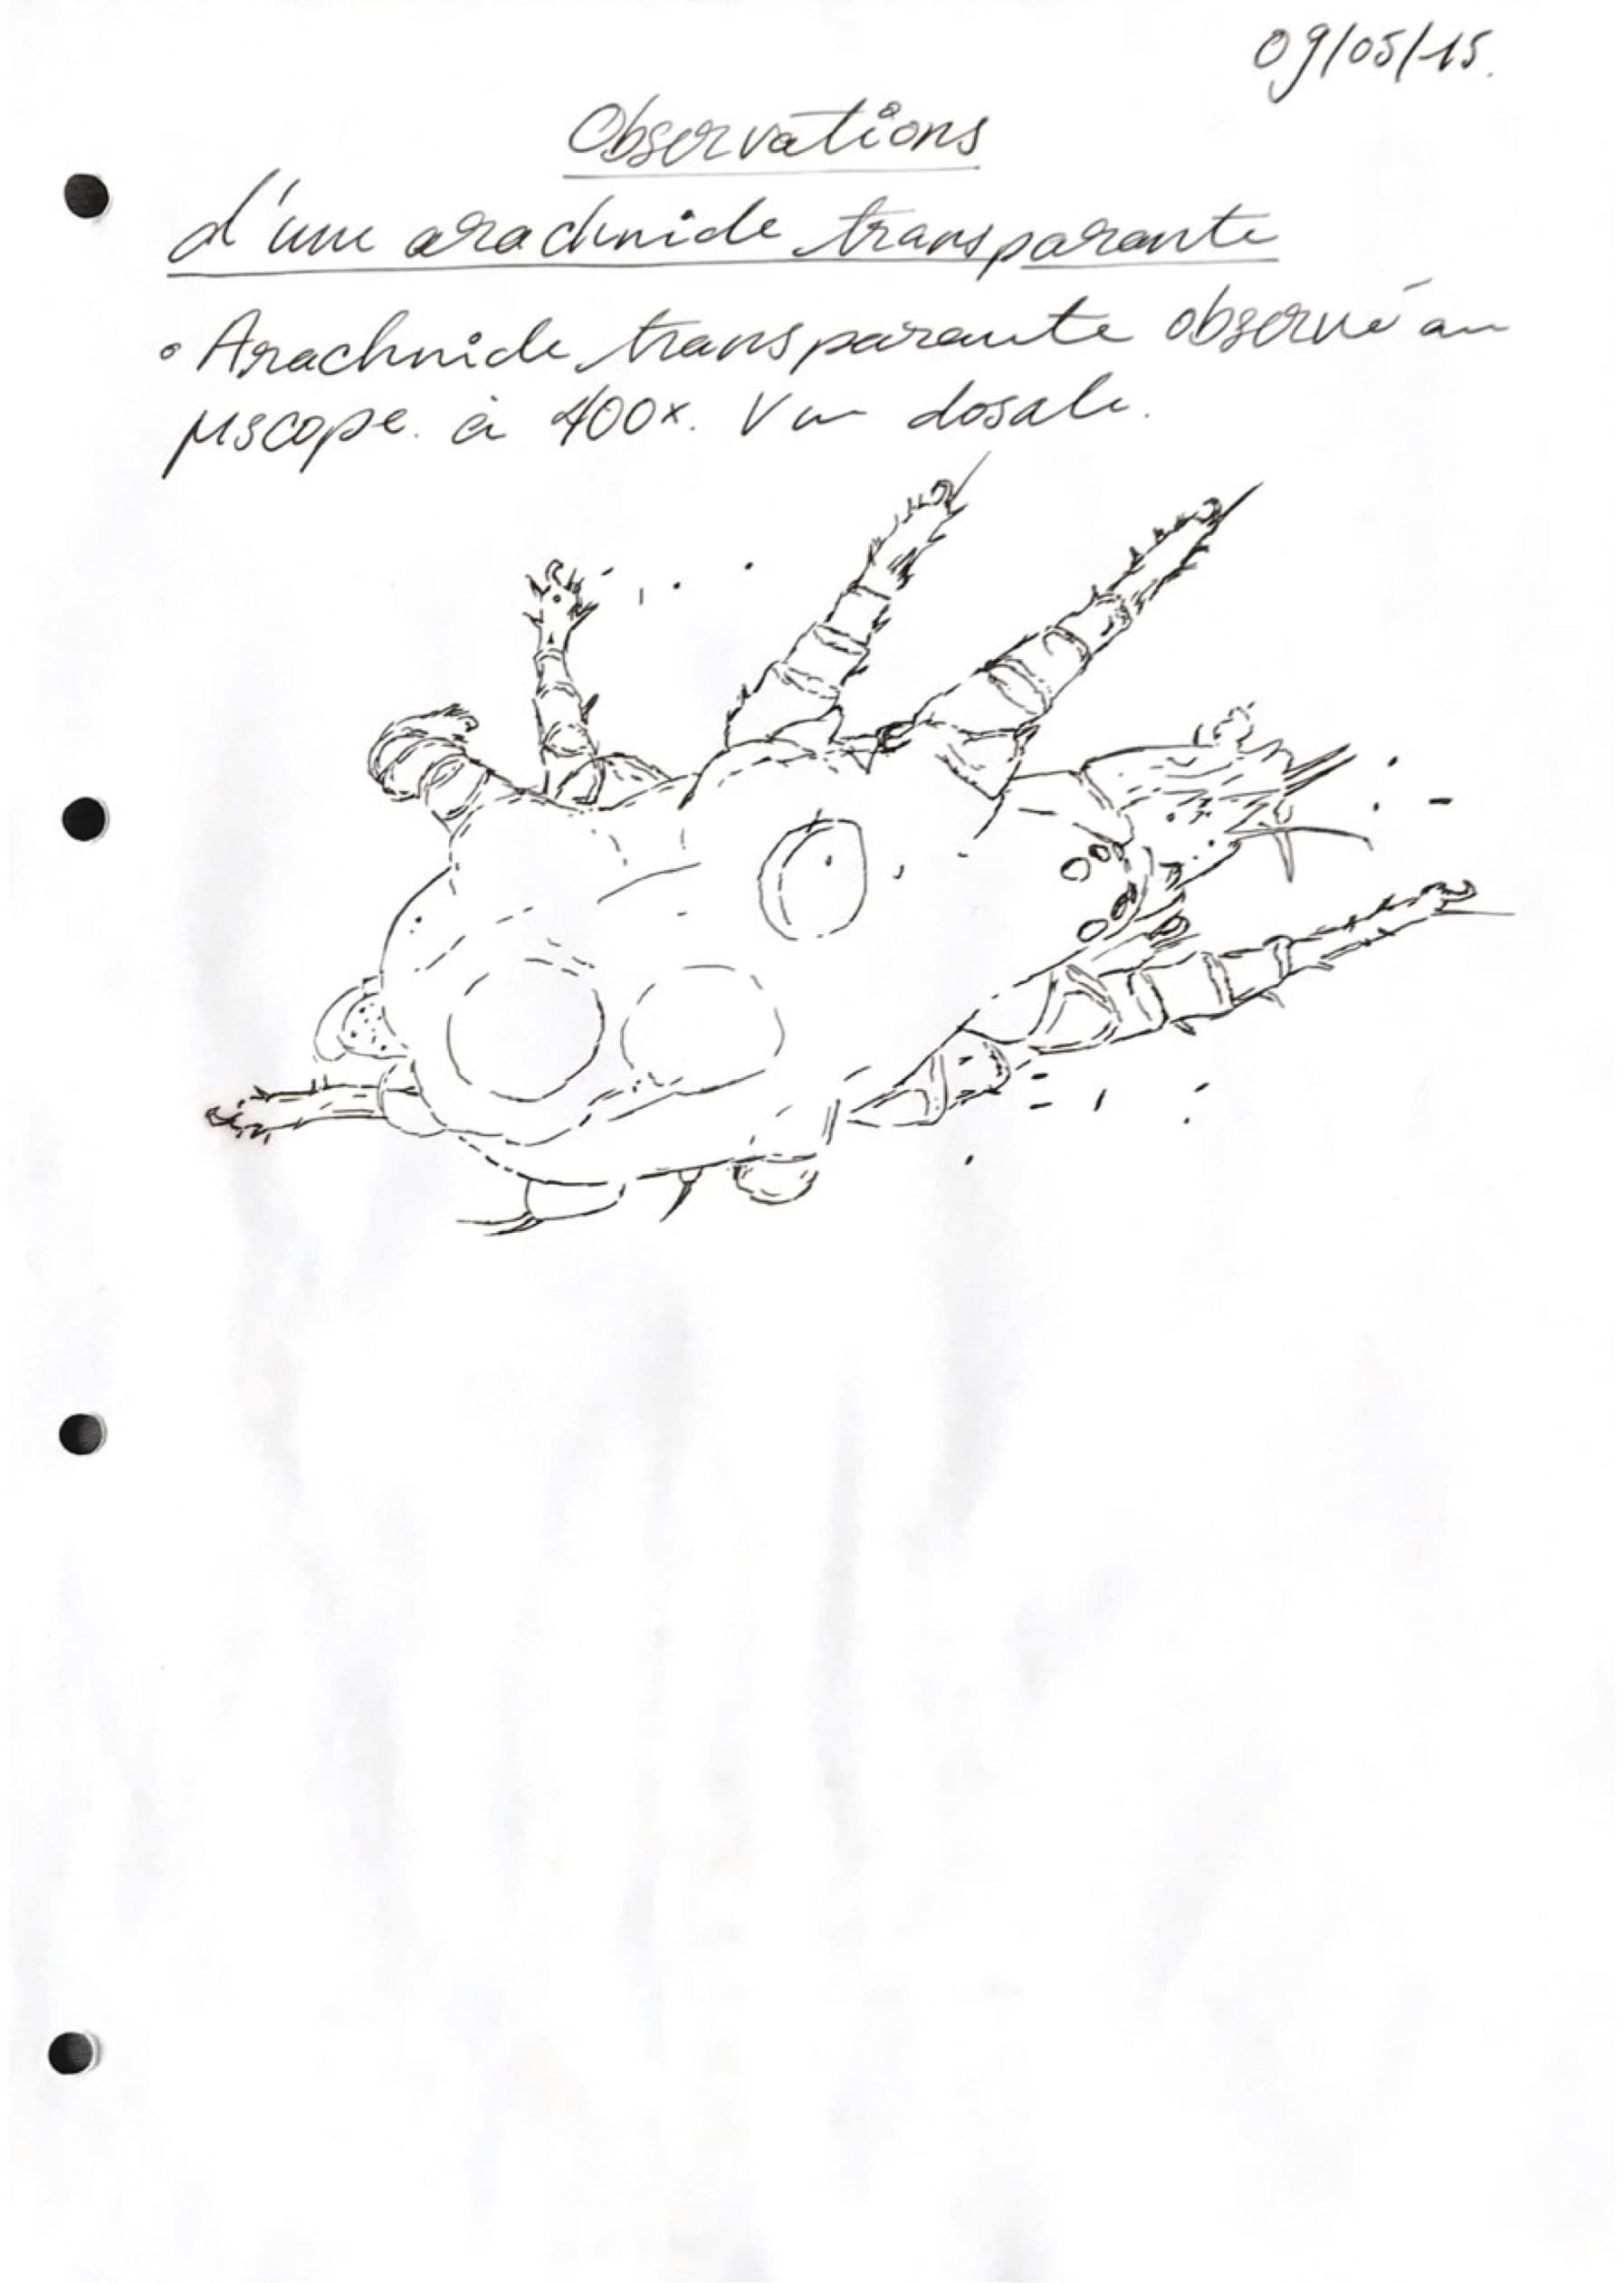 09/05/15.
Observations
d'une arachnide transparante
• Arachnide transparante observé au
µscope. à 400x. Vue dosale.